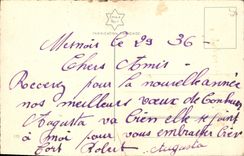 le 29 36
Chers Amis
Recevez pour la nouvelle année
nos meilleurs vœux de
Augusta va bien elle se joint
à moi pour vous embrasser bien
fort Robert Augusta